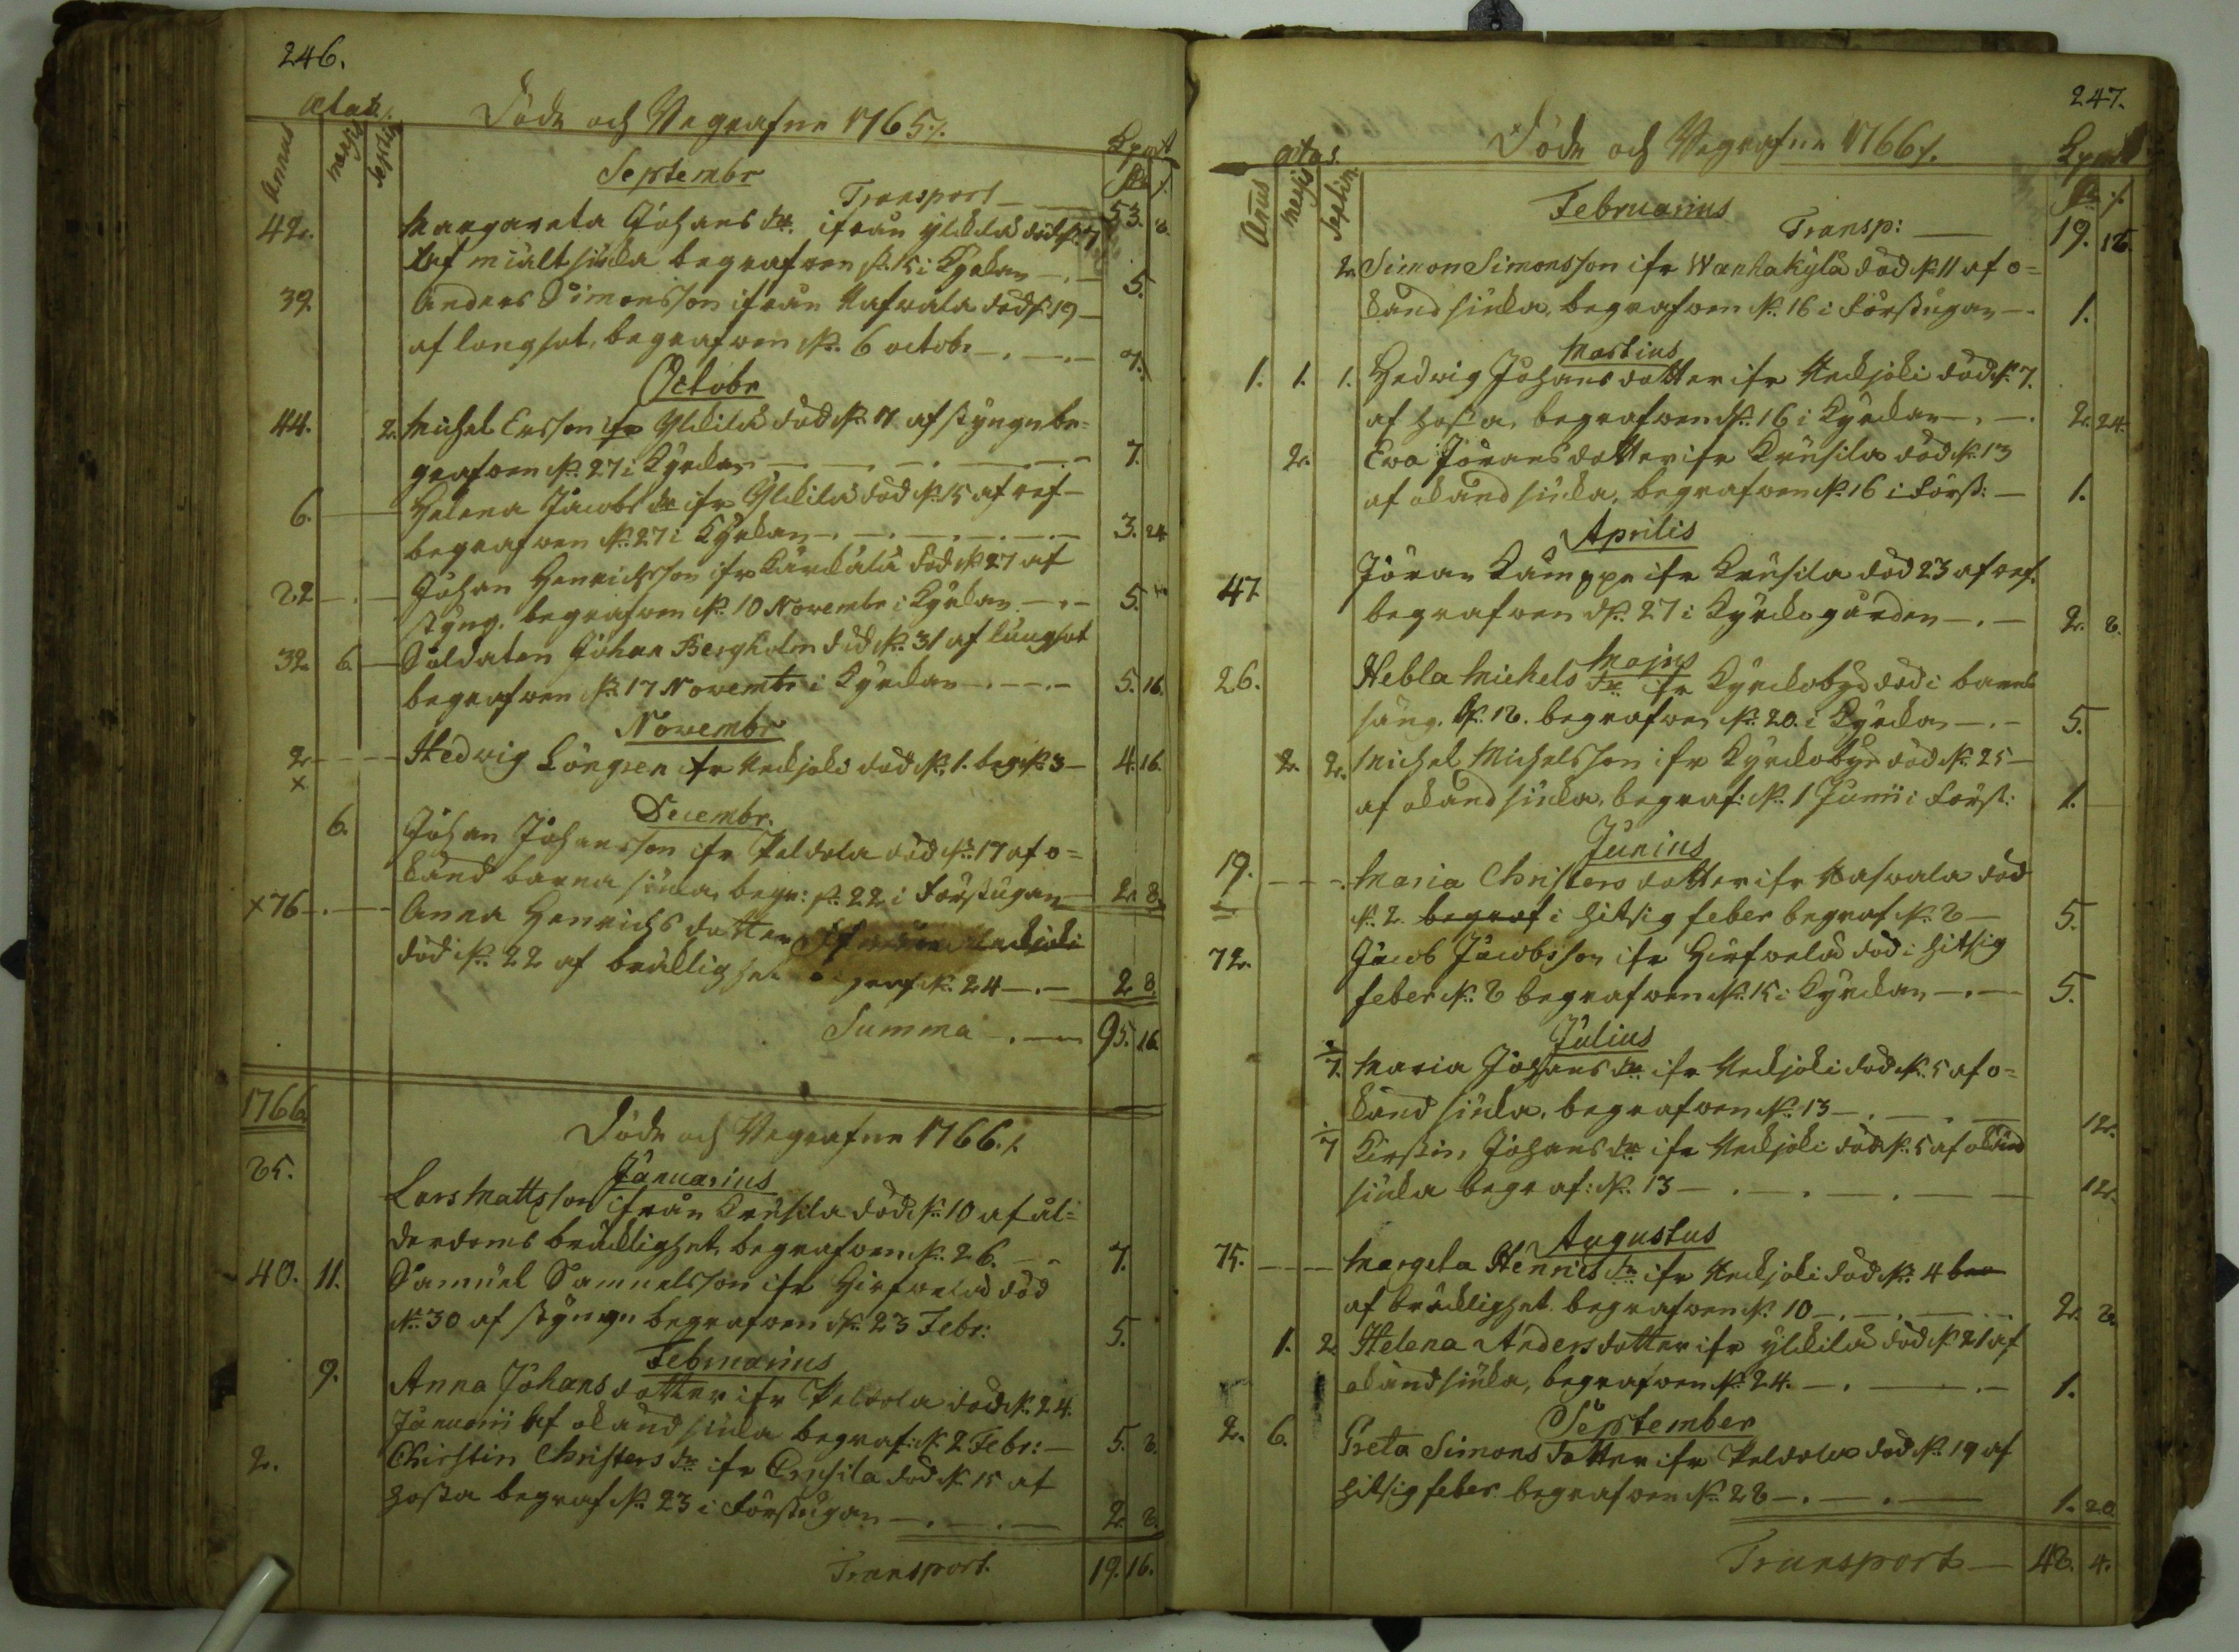 246.
Ætas
Döde och Begrafne 1765.
Annus
Septim
Septembr
Transport — 53. 8.
42. Margareta Johans dr. ifrån Ylikila död d. 7
af mialtsiuka begrafwen d. 15 i Kyrkan — 5.
39. Anders Simonsson ifrån Hafwala död d. 19
af lungsot, begrafwen d. 6 octobr — 7.
Octobr
44. 2. Michel Ersson ifr Ylikila död d. 7 af styng be=
grafwen d. 27 i Kyrkan — 7.
6. Helena Jacobs dr ifr Ylikila död d. 15 af ref
begrafwen d. 27 i Kyrkan — 3. 24
22 Johan Henrichsson ifr Kärkälä död d. 27 af
styng. begrafwen d. 10 Novembr i Kyrkan — 5.
32 6 Soldaten Johan Bergholm död d. 31 af lungsot
begrafwen d. 17 Novembr i Kyrkan — 5. 16.
Novembr
2 Hedwig Löngren ifr Uckjoki död d. 1. beg. d. 3 — 4. 16.
x
Decembr.
6. Johan Johansson ifr Peldola död d. 17 af o=
känd barnasiuka, begr: d. 22 i Förstugan — 2. 8.
x 76 Anna Henrichs dotter ifrån Uckjoki
död d. 22 af bräcklighet begraf d. 24 — 2 8.
Summa — 95. 16.
1766
Döde och Begrafne 1766.
Januarius
85. Lars Mattsson ifrån Krusila död d. 10 af ål=
derdoms bräcklighet, begrafwen d. 26. — 7.
40. 11. Samuel Samuelsson ifr Hirfwelä död
d. 30 af styng begrafwen d. 23 Febr: 5.
Februarius
9. Anna Johansdotter ifr Peldola död d. 24.
Januarii af okänd siuka begraf: d. 2 Febr: — 5. 8.
2. Christin Christers dr ifr Krusila död d. 15 af
hosta begraf d. 23 i Förstugan — 2. 8.
Transport. 19. 16.
247.
Döde och Begrafne 1766.
Ætas
Annus
Septim
Februarius
Transp: — 19. 16.
2. Simon Simonsson ifr Wanhakylä död d. 11 af o=
känd siuka, begrafwen d. 16 i Förstugan — 1.
Martius
1. 1. 1. Hedwig Johansdotter ifr Uckjoki död d. 7.
af hosta, begrafwen d. 16 i Kyrkan — 2. 24.
2. Ewa Jöransdotter ifr Krusila död d. 13
af okänd siuka, begrafwen d. 16 i Först: — 1.
Aprilis
47. Jöran Kämppe ifr Krusila död 23 af ref.
begrafwen d. 27 i Kyrkogården — 2. 8.
Majus
26. Hebla Michels dr ifr Kyrkoby död i barn
säng. d. 18. begrafwen d. 20. i Kyrkan — 5.
2. 2. Michel Michelsson ifr Kyrkoby död d. 25
af okänd siuka, begraf: d. 1 Junii i Först: 1.
Junius
19. Maria Christers dotter ifr Hafwala död
d. 2 begraf i hitsig feber begraf d. 8 — 5.
72. Jacob Jacobsson ifr Hirfwelä död i hitsig
feber d. 8 begrafwen d. 15 i Kyrkan — 5.
Julius
2/7. Maria Johans dr ifr Uckjoki död d. 5 af o=
känd siuka, begrafwen d. 13 — 12.
1/7 Kirstin Johans dr ifr Uckjoki död d. 5 af okänd
siuka begraf: d. 13 — 12.
Augustus
75. Margeta Henrics dr ifr Uckjoki död d. 4 beg
af bräcklighet begrafwen d. 10 — 2. 8.
1. 2 Helena Andersdotter ifr Ylikila död d. 21 af
okänd siuka, begrafwen d. 24. — 1.
September
2. 6. Greta Simons dotter ifr Peldola död d. 19 af
hitsig feber begrafwen d. 28 — 1. 20
Transport — 48. 4.